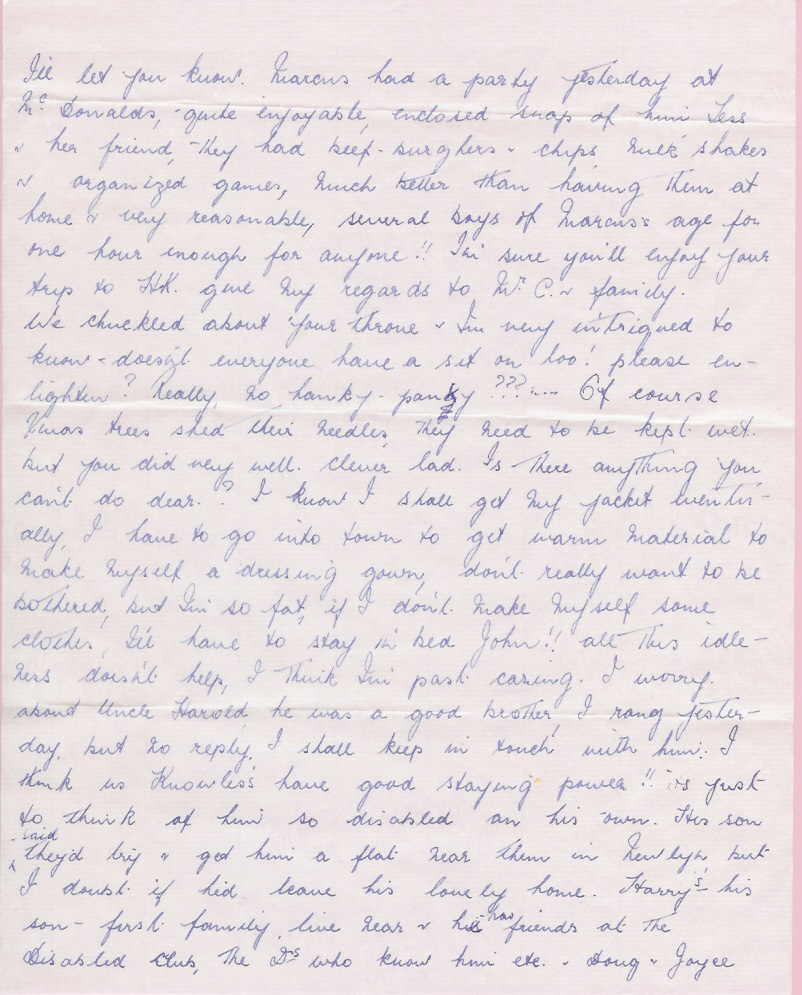 I'll let you know. Marcus had a party yesterday at
Mc Donalds, - quite enjoyable, enclosed snap of him Tess
& her friend, - They had beef-burghers & chips Milk shakes
& organized games, Much better than having them at
home & very reasonable, several boys of Marcus's age for
one hour enough for anyone!! I'm sure you'll enjoy your
trip to H.K. give my regards to Mr C. & family.
We chuckled about your throne & I'm very intrigued to
know - doesn't everyone have a sit on loo! please en-
lighten? Really, no hanky-panky ???.... Of course
Xmas trees shed their needles, They need to be kept wet.
but you did very well. clever lad. Is there anything you
can't do dear.? I know I shall get my jacket eventu-
ally, I have to go into town to get warm material to
make myself a dressing gown, don't really want to be
bothered, but I'm so fat, if I don't make myself some
clothes, I'll have to stay in bed John!! all this idle-
ness doesn't help, I think I'm past caring. I worry.
about Uncle Harold, he was a good brother, I rang yester-
day, but no reply, I shall keep in touch with him. I
think us Knowles's have good staying power!! its just
to think of him so disabled on his own. His son
said
they'd try & get him a flat near them in Newlyn, but
I doubt if he'd leave his lovely home. Harry's - his
son - first family, live near & he has friends at the
Disabled Club, The Drs who know him etc. & Doug & Joyce